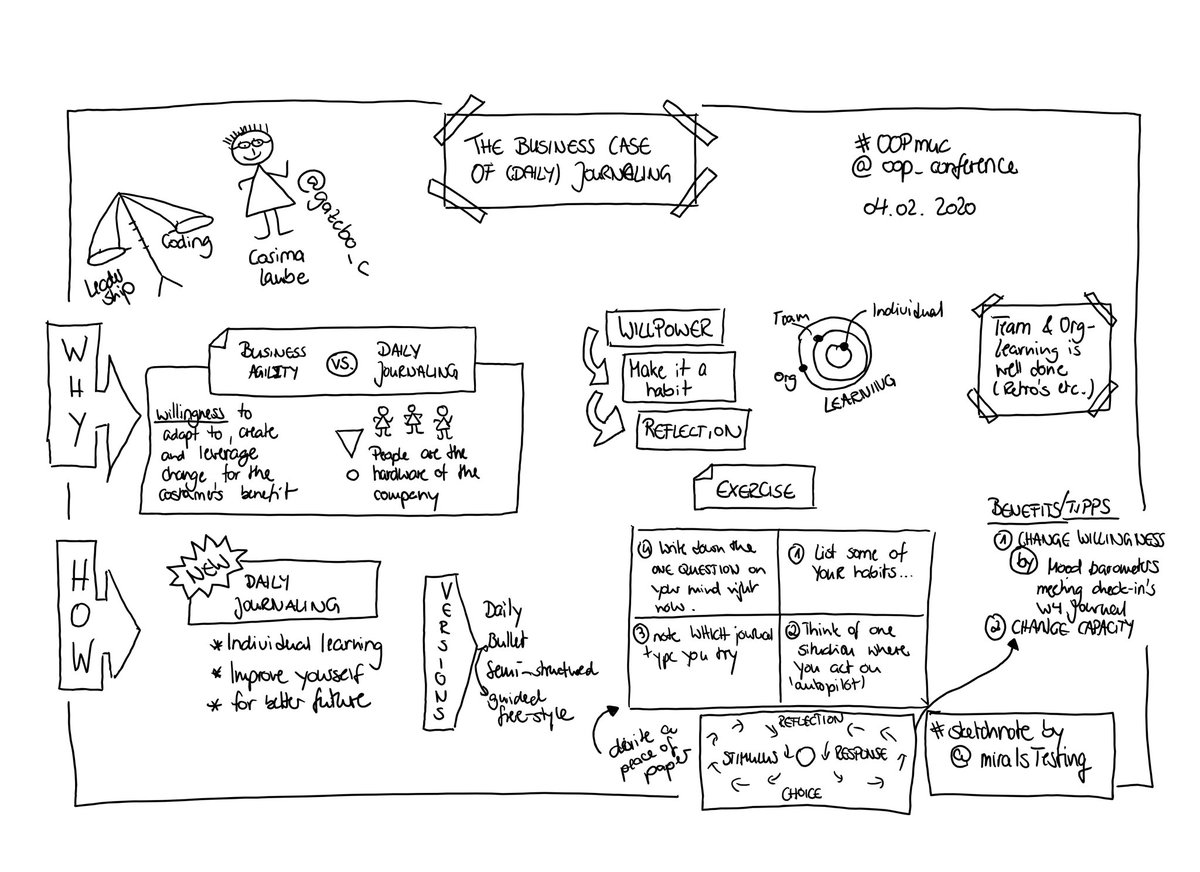 THE BUSINESS CASE
OF (DAILY) JOURNALING
#OOPmuc
@oop_conference
04.02.2020
Leader
ship
Coding
@gazebo_c
Cosima
Laube
WHY
BUSINESS
AGILITY
VS.
DAILY
JOURNALING
willingness to
adapt to, create
and leverage
change for the
costumer's benefit
People are the
hardware of the
company
WILLPOWER
Make it a
habit
REFLECTION
Team
Individual
Org
LEARNING
Team & Org-
Learning is
well done
(Retro's etc.)
EXERCISE
HOW
NEW
DAILY
JOURNALING
* Individual learning
* Improve yourself
* for better future
VERSIONS
Daily
Bullet
Semi-structured
guided
free-style
4 Write down the
ONE QUESTION on
your mind right
now.
1 List some of
YOUR habits...
3 note WHICH journal
type you try
2 Think of one
situation where
you act on
'autopilot)
peace of
paper
REFLECTION
STIMULUS
RESPONSE
CHOICE
BENEFITS/TIPPS
1 CHANGE WILLINGNESS
by Mood barometers
meeting check-in's
journal
2 CHANGE CAPACITY
#sketchnote by
@miralsTesting